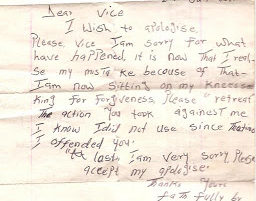 Dear Vice
I wish to apologise.
Please, Vice Iam sorry for what
have happened, it is now that I real-
se my musta ke becouse of that-
Iam now sitting on my kneesse
king for forgiveness, please retreat
The action you took againest me
I know Idid not use since that
I offended you.
last Iam very sorry Please
accept my apologise.
Thanks Yours
fath fully by